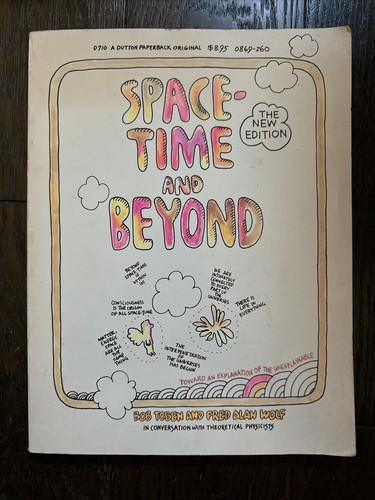 D910 A DUTTON PAPERBACK ORIGINAL $8.95 0869-260
SPACE-
TIME
AND
BEYOND
THE
NEW
EDITION
BEYOND
SPACE-TIME
IS
WITHIN
US
WE ARE
INTIMATELY
CONNECTED
TO EVERY
PART OF
THE
UNIVERSES
CONSCIOUSNESS
IS THE ORIGIN
OF ALL SPACE-TIME
THERE IS
LIFE IN
EVERYTHING
MATTER,
ENERGY,
SPACE,
TIME
ARE ALL
THE
SAME
THING
THE
INTERPENETRATION
OF THE
UNIVERSES
HAS BEGUN
TOWARD AN EXPLANATION OF THE UNEXPLAINABLE
BOB TOBEN AND FRED ALAN WOLF
IN CONVERSATION WITH THEORETICAL PHYSICISTS